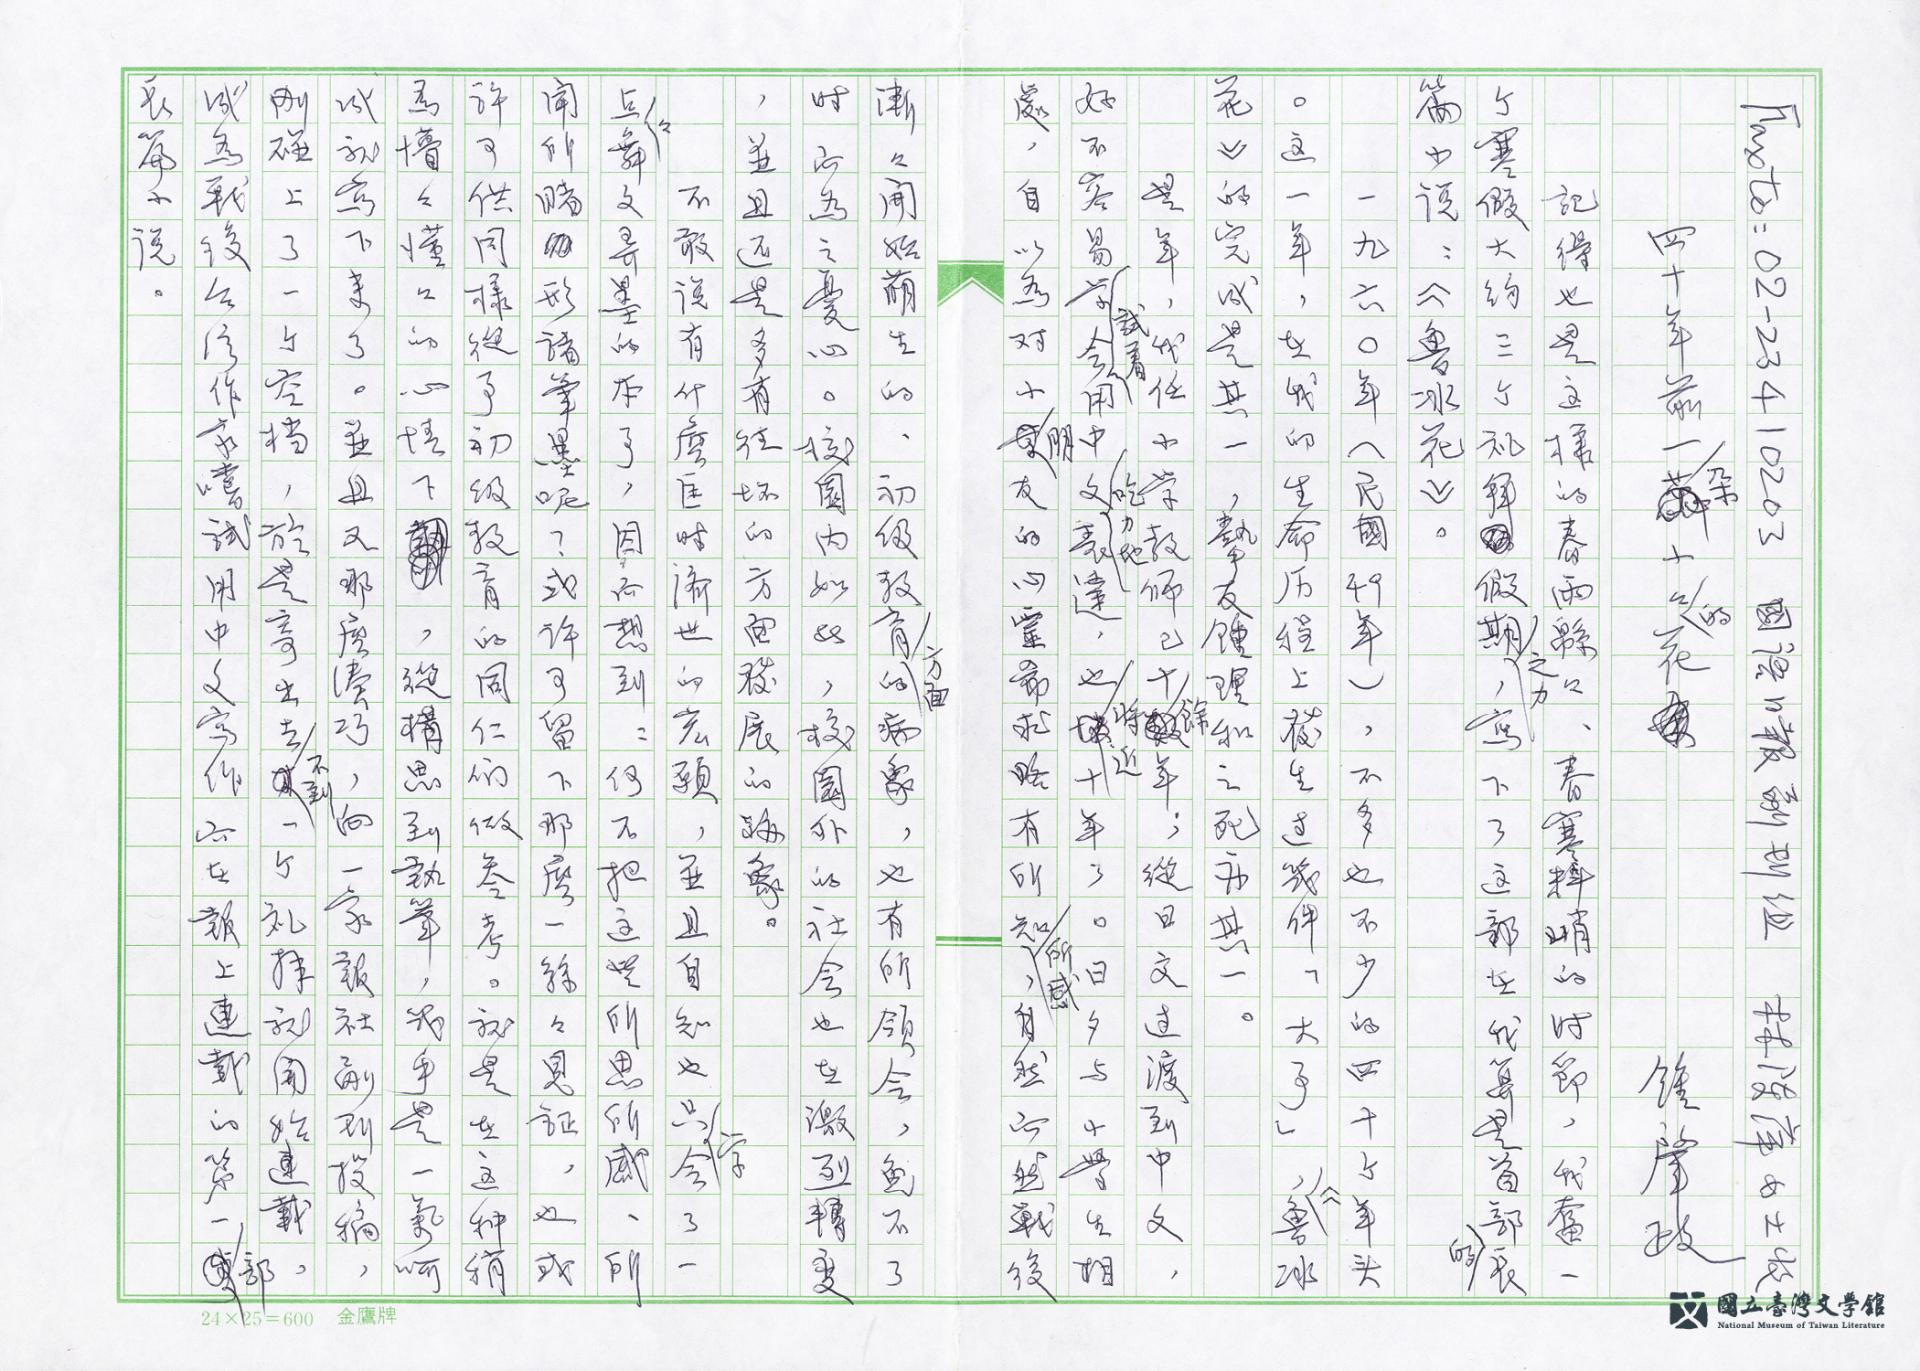 Fax to: 02-23410203 國語日報副刊組 林陵萍女士收
四十年前一朵小小的花 鍾肇政
記得也是這樣的春雨綿々、春寒料峭的时節,我奮一
个寒假大約三个礼拜假期之力,寫下了这部在我算是首部的長
篇小説:《魯冰花》。
一九六〇年(民國49年),不多也不少的四十个年头
。这一年,在我的生命历程上發生过幾件「大事」,《魯冰
花》的完成是其一,摯友鍾理和之死亦其一。
是年,我任小学教師已十餘年;從日文过渡到中文,
好不容易学会試着用中文吃力地表達,也將近十年了。日夕与小學生相
處,自以為对小朋友的心靈葡祈略有所知所感,自然亦然戰後
漸々開始萌生的、初級教育方面的病象,也有所領会,免不了
时亦為之憂心。校園内如此,校園外的社会也在激烈轉变
,並且还是多有往坏的方面發展的跡象。
不敢說有什麼匡时濟世的宏願,並且自知也只会学了一
点々舞文弄墨的本事,因而想到:何不把这些所思所感、所
聞所睹形諸筆墨呢?或許可留下那麼一絲々見証,也或
許可供同樣從事初級教育的同仁们做參考。就是在这种稍
為懵々懂々的心情下,從構思到執筆,幾乎是一氣呵
成就寫下來了。並且又那麼湊巧,向一家報社副刊投稿,
刚碰上了一个空档,於是寄出去不到一个礼拜就開始連載,
成為戰後台湾作家嚐試用中文寫作而在報上連載的第一部
長篇小説。
24×25=600 金鷹牌
國立臺灣文學館
National Museum of Taiwan Literature